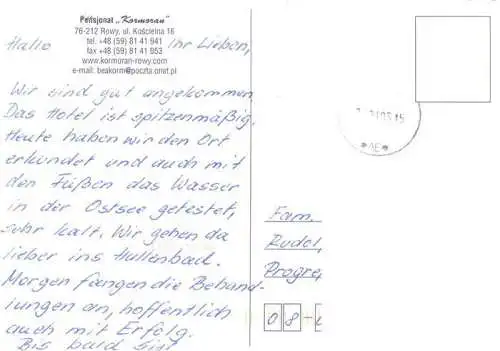 Pensjonat „Kormoran"
76-212 Rowy, ul. Kościelna 16
tel. +48 (59) 81 41 941
fax +48 (59) 81 41 853
www.kormoran-rowy.com
e-mail: beakorm@poczta.onet.pl
Hallo Ihr Lieben,
Wir sind gut angekommen
Das Hotel ist spitzenmäßig.
Heute haben wir den Ort
erkundet und auch mit
den Füßen das Wasser
in der Ostsee getestet,
sehr kalt. Wir gehen da
lieber ins Hallenbad.
Morgen fangen die Behand-
lungen an, hoffentlich
auch mit Erfolg.
Bis bald
Fam.
Rudol
Progre
08-